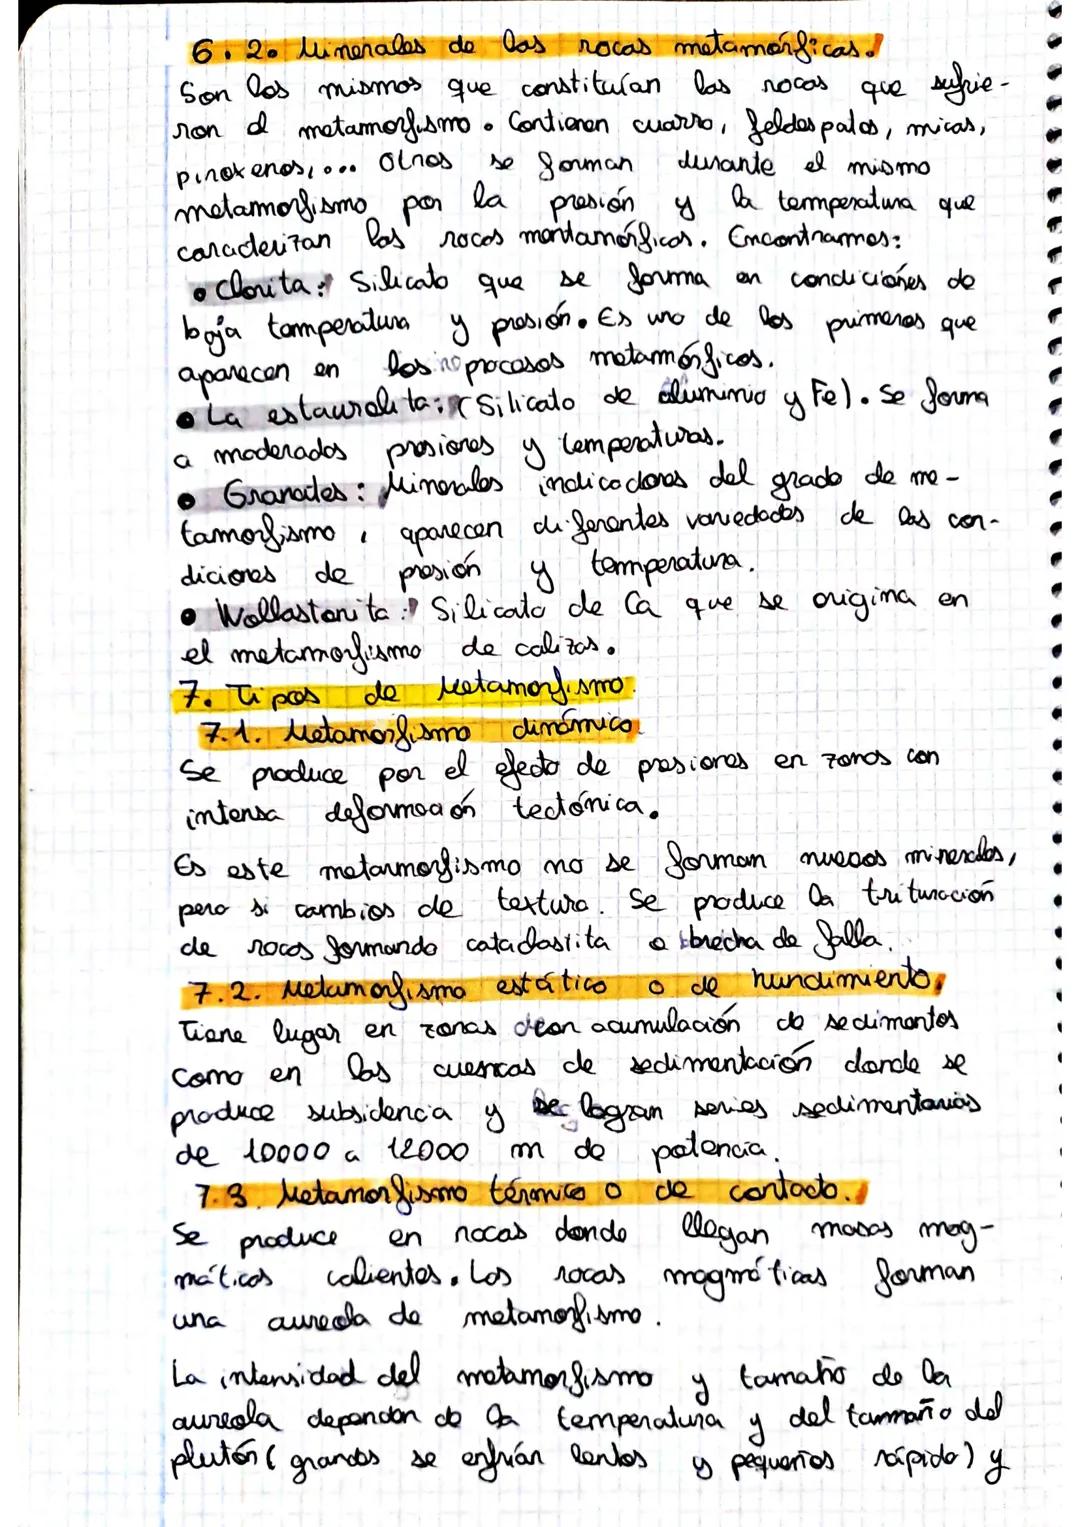 6.2. Minerales de las rocas metamórficas.
Son los mismos que constituían las rocas que sufrie-
ron el metamorfismo. Contienen cuarzo, feldespatos, micas,
piroxenos,... Otros se forman durante el mismo
metamorfismo por la presión y la temperatura que
caracterizan las rocas mentamórficas. Encontramos:
• Clorita: Silicato que se forma en condiciones de
baja temperatura y presión. Es uno de los primeros que
aparecen en los procesos metamórficos.
• La estaurolita: (Silicato de aluminio y Fe). Se forma
a moderados presiones y temperaturas.
• Granates: Minerales indicadores del grado de me-
tamorfismo, aparecen diferentes variedades de las con-
diciones de presión y temperatura.
• Wollastonita: Silicato de Ca que se origina en
el metamorfismo de calizas.
7. Tipos de Metamorfismo.
7.1. Metamorfismo dinámico.
Se produce por el efecto de presiones en zonas con
intensa deformación tectónica.
Es este metarmorfismo no se forman nuevos minerales,
pero si cambios de textura. Se produce la trituración
de rocas formando cataclastita o brecha de falla.
7.2. Metamorfismo estático o de hundimiento.
Tiene lugar en zonas con acumulación de sedimentos
como en las cuencas de sedimentación donde se
produce subsidencia y se logran series sedimentarias
de 10000 a 12000 m de potencia.
7.3. Metamorfismo térmico o de contacto.
Se produce en rocas donde llegan masas mag-
máticas calientes. Las rocas magmáticas forman
una aureola de metamorfismo.
La intensidad del metamorfismo y tamaño de la
aureola dependen de la temperatura y del tammaño del
plutón (grandes se enfrían lentos y pequeños rápido) y